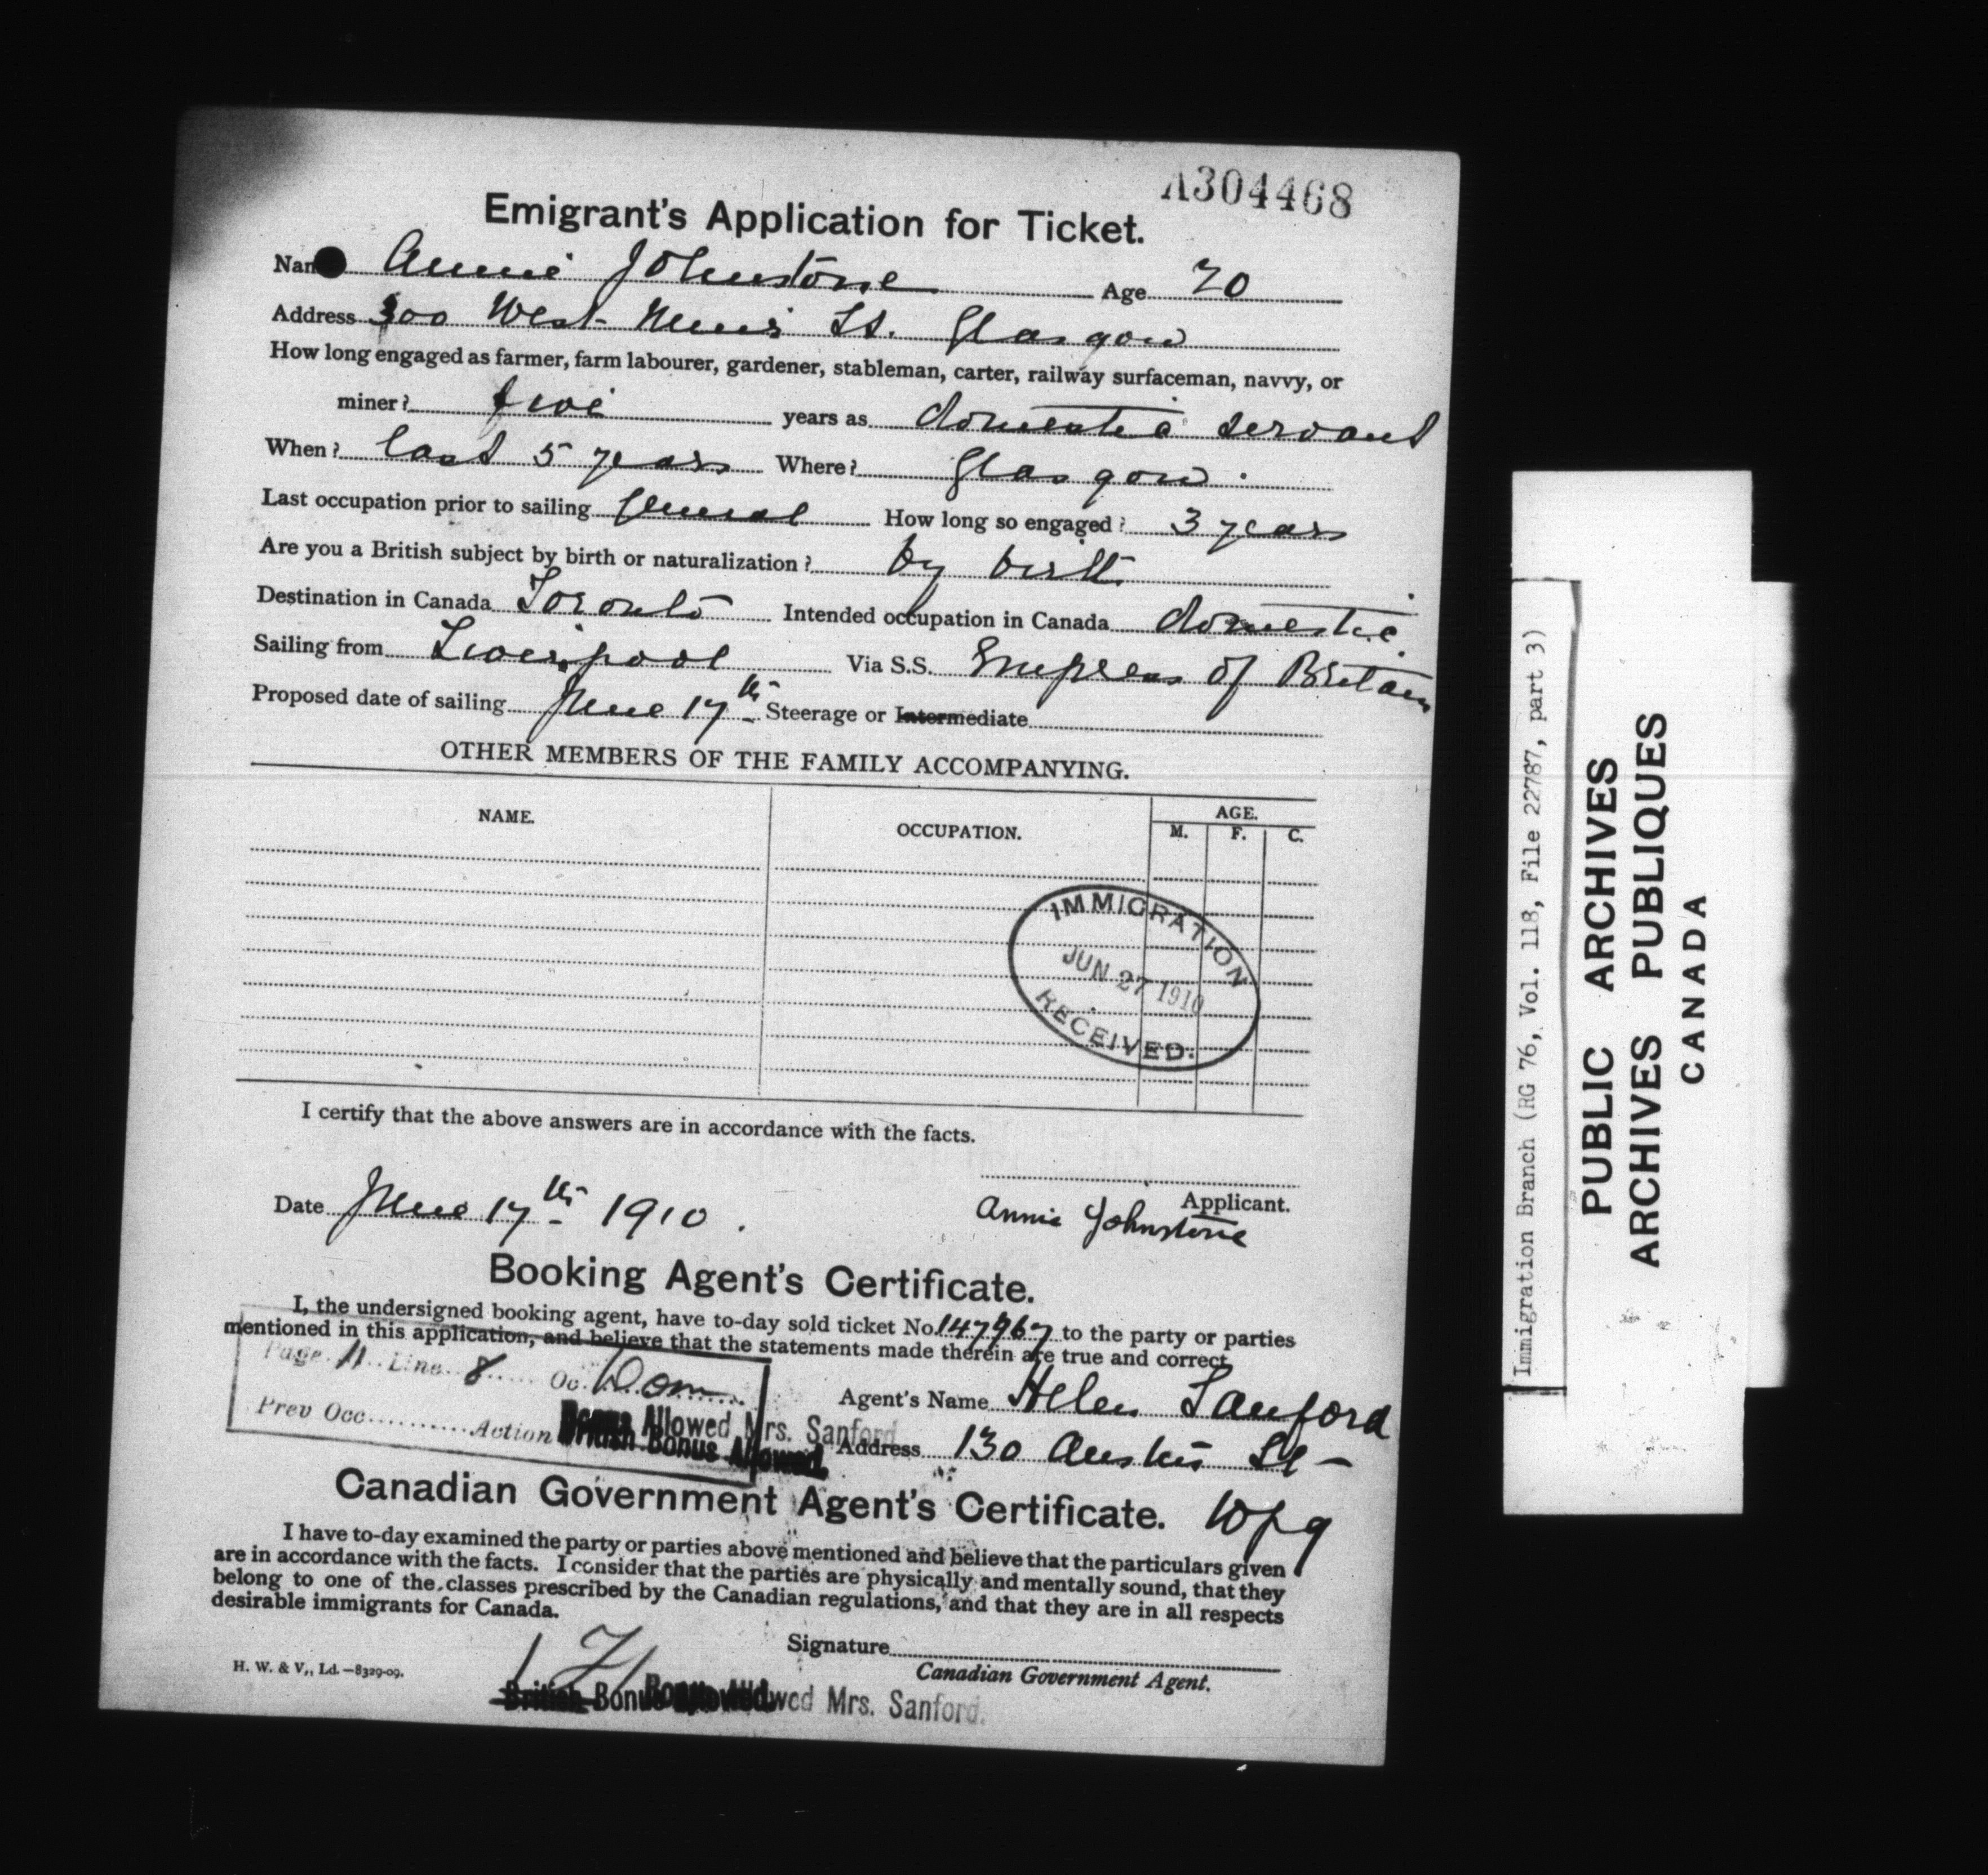 A304468
Emigrant's Application for Ticket.
Name Annie Johnstone Age 20
Address 300 West Nile St. Glasgow
How long engaged as farmer, farm labourer, gardener, stableman, carter, railway surfaceman, navvy, or
miner? five years as domestic servant
When? last 5 years Where? Glasgow.
Last occupation prior to sailing general How long so engaged? 3 years
Are you a British subject by birth or naturalization? by birth
Destination in Canada Toronto Intended occupation in Canada domestic
Sailing from Liverpool Via S.S. Empress of Britain
Proposed date of sailing June 17th Steerage or Intermediate
OTHER MEMBERS OF THE FAMILY ACCOMPANYING.
NAME. OCCUPATION. AGE.
M. F. C.
IMMIGRATION
JUN 27 1910
RECEIVED.
I certify that the above answers are in accordance with the facts.
Date June 17th 1910. Applicant.
Annie Johnstone
Booking Agent's Certificate.
I, the undersigned booking agent, have to-day sold ticket No. 147967 to the party or parties
mentioned in this application, and believe that the statements made therein are true and correct.
Page 11 Line 8 Oc Dom
Agent's Name Helen Sanford
Prev Occ Action Bonus Allowed Mrs. Sanford
British Bonus Allowed.
Address 130 Austin St -
Wpg
Canadian Government Agent's Certificate.
I have to-day examined the party or parties above mentioned and believe that the particulars given
are in accordance with the facts. I consider that the parties are physically and mentally sound, that they
belong to one of the classes prescribed by the Canadian regulations, and that they are in all respects
desirable immigrants for Canada.
Signature
Canadian Government Agent.
H. W. & V., Ld.—8329-09.
British Bonus Allowed Mrs. Sanford.
Immigration Branch (RG 76, Vol. 118, File 22787, part 3)
PUBLIC ARCHIVES
ARCHIVES PUBLIQUES
CANADA